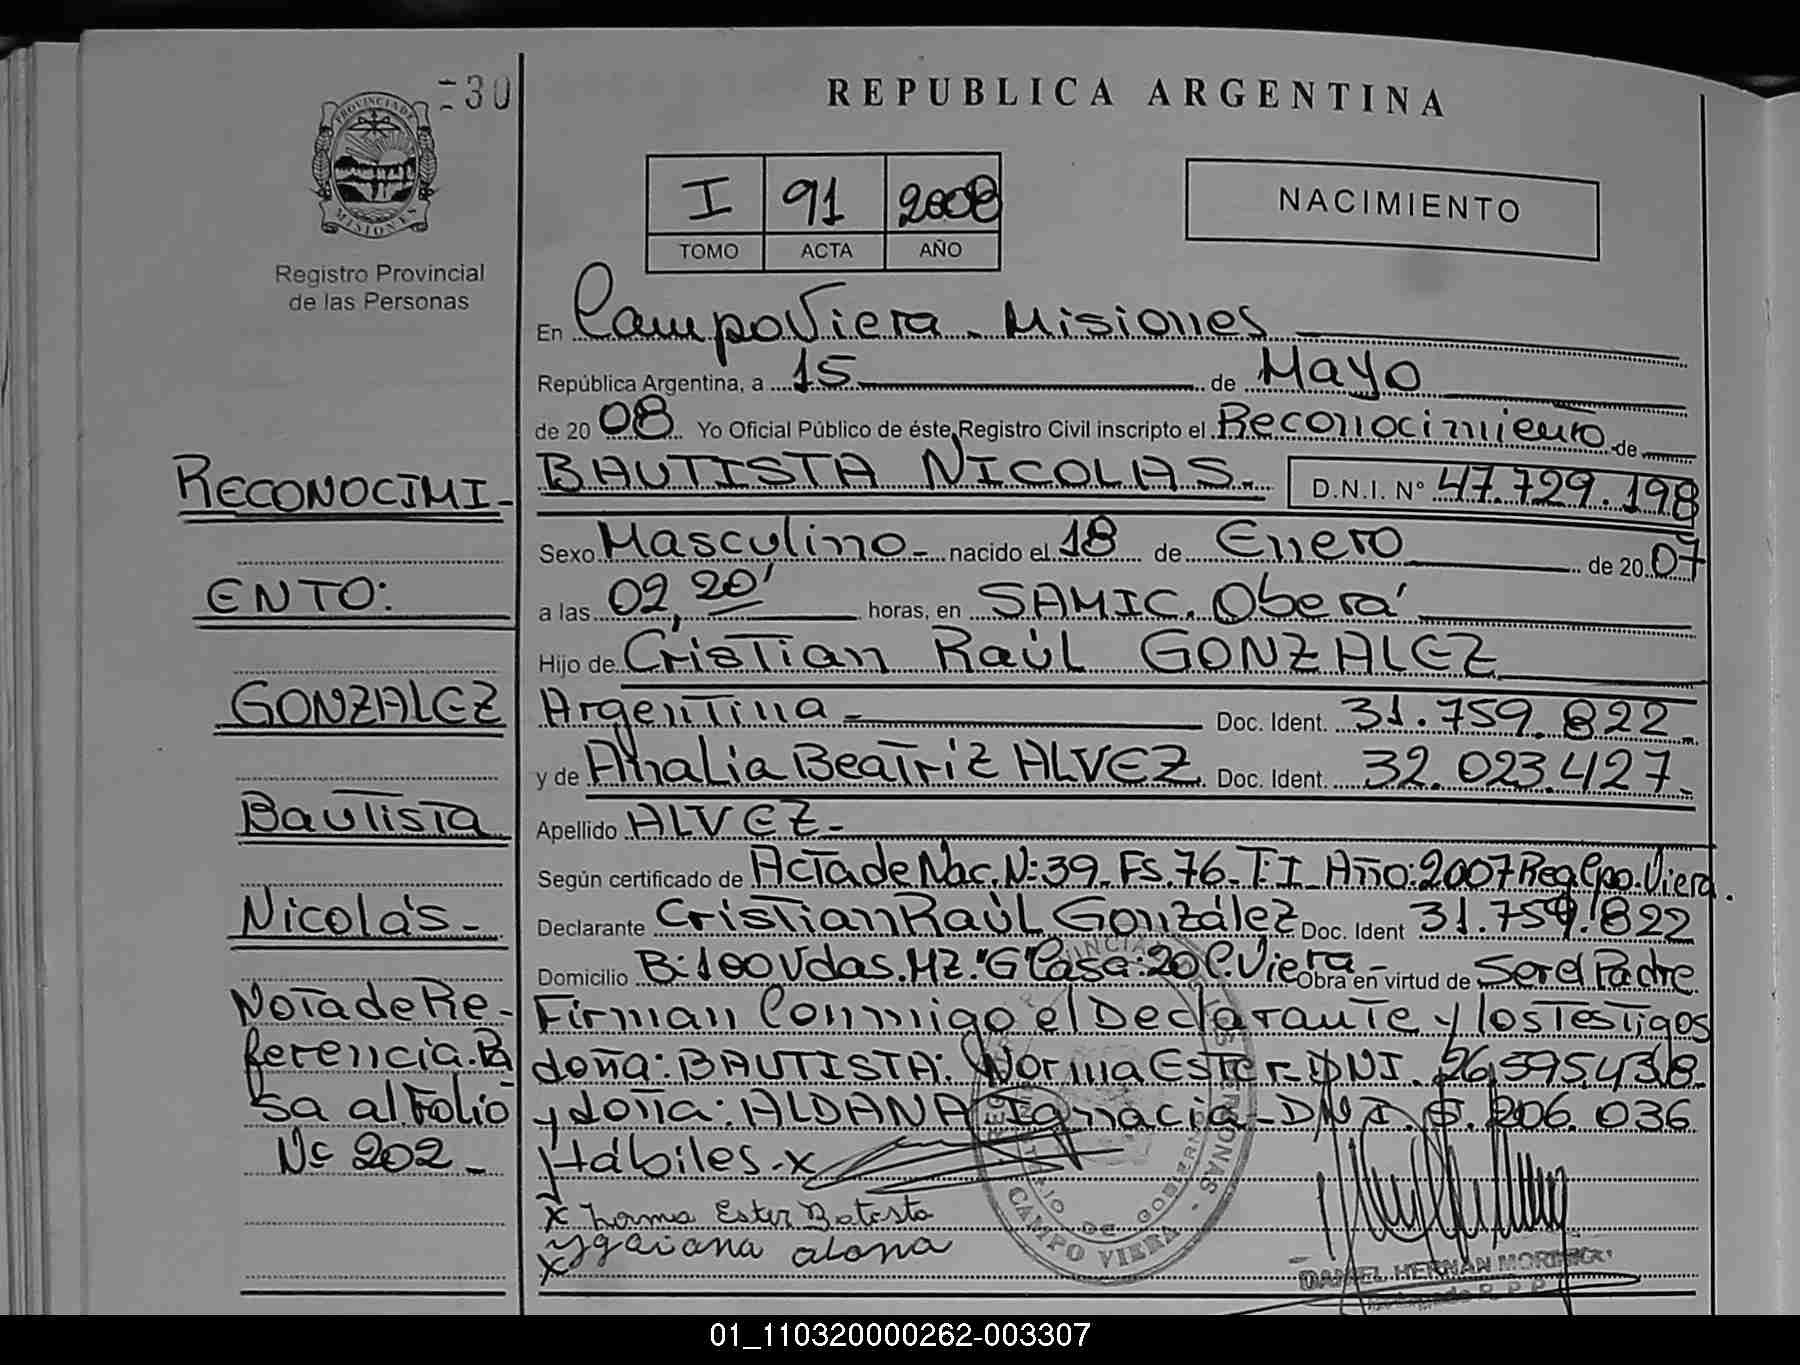 30
REPUBLICA ARGENTINA
PROVINCIA DE MISIONES
I 91 2008
TOMO ACTA AÑO
NACIMIENTO
Registro Provincial
de las Personas
En Campo Viera - Misiones
República Argentina, a 15 de Mayo
de 20 08 Yo Oficial Público de éste Registro Civil inscripto el Reconocimiento de
BAUTISTA NICOLAS. D.N.I. Nº 47.729.198
Sexo Masculino - nacido el 18 de Enero de 20 07
a las 02,20' horas, en SAMIC. Oberá
Hijo de Cristian Raúl GONZALEZ
Argentina - Doc. Ident. 31.759.822
y de Analia Beatriz ALVEZ Doc. Ident. 32.023.427.
Apellido ALVEZ -
Según certificado de Acta de Nac. N: 39 - Fs. 76 - T: I Año: 2007 Reg. Cpo. Viera.
Declarante Cristian Raúl González Doc. Ident 31.759.822
Domicilio B: 100 Vdas. MZ. "G" Casa: 20 C. Viera - Obra en virtud de Ser el Padre
Firman Conmigo el Declarante y los Testigos
doña: BAUTISTA: Norma Ester - DNI. 26.395.438
y doña: ALDANA Ignacia - DNI. 5.206.036
Hábiles. x
x Norma Ester Batista
x
RECONOCIMI-
ENTO:
GONZALEZ
Bautista
Nicolás -
Nota de Re-
ferencia. Pa
sa al Folio
Nº 202 -
CAMPO VIERA
DANIEL HERNAN MOREIRA
01_110320000262-003307